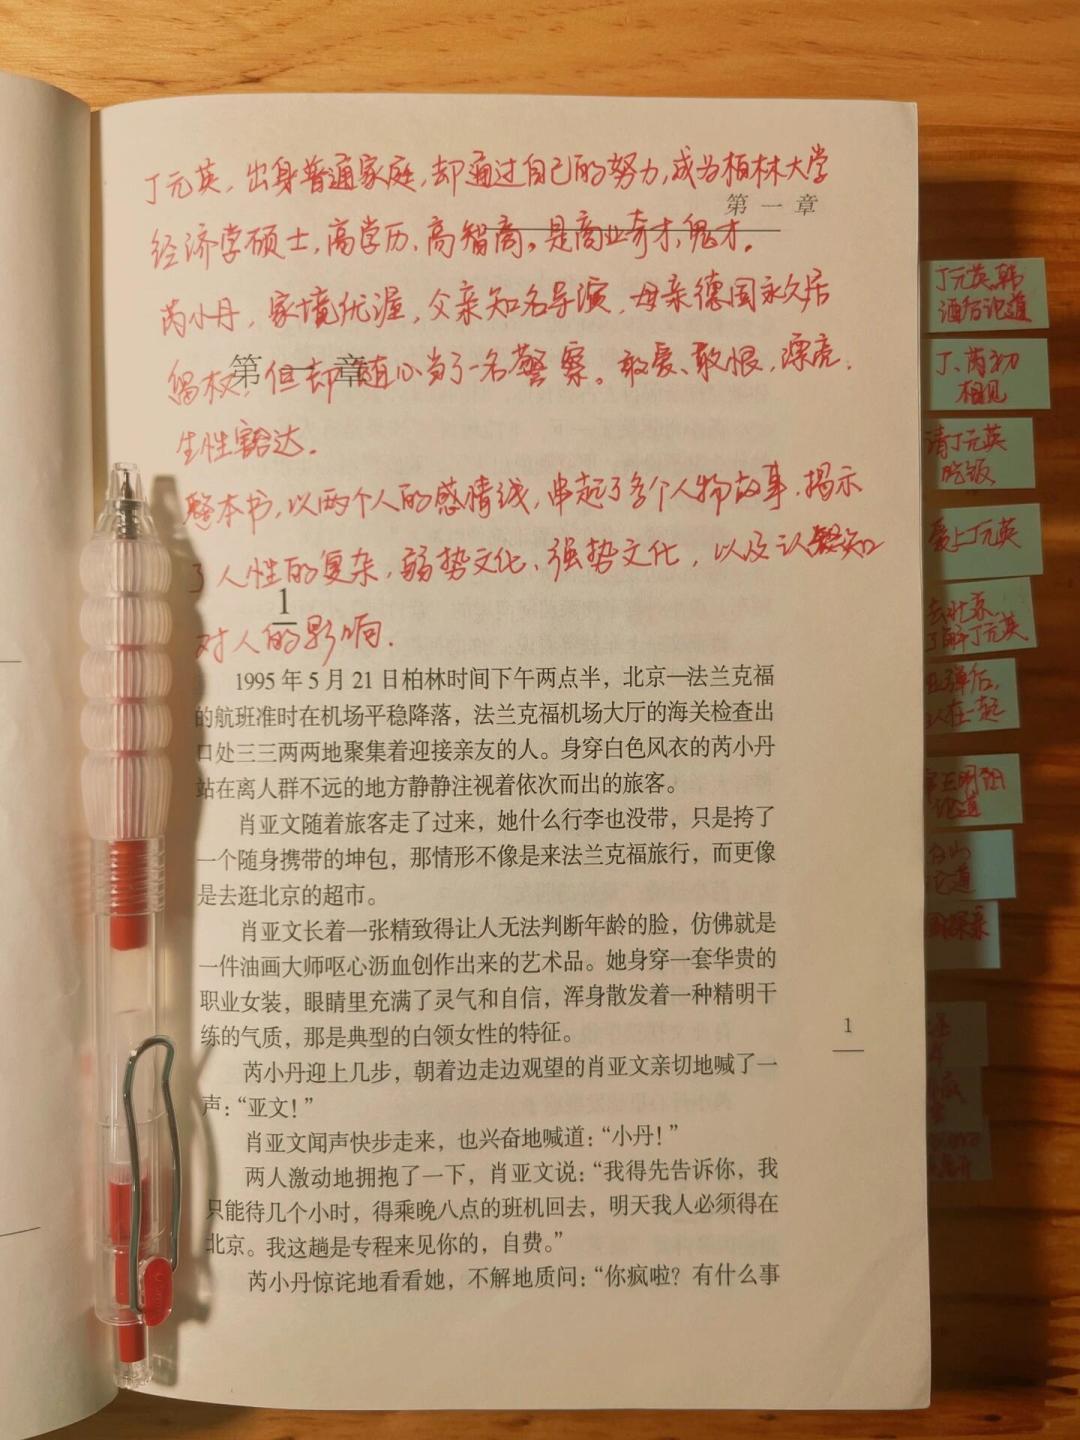 丁元英，出身普通家庭，却通过自己的努力，成为柏林大学
第一章
经济学硕士，高学历，高智商。是商业奇才，鬼才。
芮小丹，家境优渥，父亲知名导演，母亲德国永久居
第一章
留权，但却随心当了一名警察。敢爱、敢恨，漂亮，
生性豁达.
整本书，以两个人的感情线，串起了多个人物故事，揭示
了人性的复杂，弱势文化、强势文化，以及认知
1
对人的影响.
1995年5月21日柏林时间下午两点半，北京—法兰克福
的航班准时在机场平稳降落，法兰克福机场大厅的海关检查出
口处三三两两地聚集着迎接亲友的人。身穿白色风衣的芮小丹
站在离人群不远的地方静静注视着依次而出的旅客。
肖亚文随着旅客走了过来，她什么行李也没带，只是挎了
一个随身携带的坤包，那情形不像是来法兰克福旅行，而更像
是去逛北京的超市。
肖亚文长着一张精致得让人无法判断年龄的脸，仿佛就是
一件油画大师呕心沥血创作出来的艺术品。她身穿一套华贵的
职业女装，眼睛里充满了灵气和自信，浑身散发着一种精明干
练的气质，那是典型的白领女性的特征。
芮小丹迎上几步，朝着边走边观望的肖亚文亲切地喊了一
声：“亚文！”
肖亚文闻声快步走来，也兴奋地喊道：“小丹！”
两人激动地拥抱了一下，肖亚文说：“我得先告诉你，我
只能待几个小时，得乘晚八点的班机回去，明天我人必须得在
北京。我这趟是专程来见你的，自费。”
芮小丹惊诧地看看她，不解地质问：“你疯啦？有什么事
1
丁元英、韩
酒后论道
丁、芮初
相见
请丁元英
吃饭
爱上丁元英
去北京
了解丁元英
弹后，
人在一起
论道
论道
国探亲